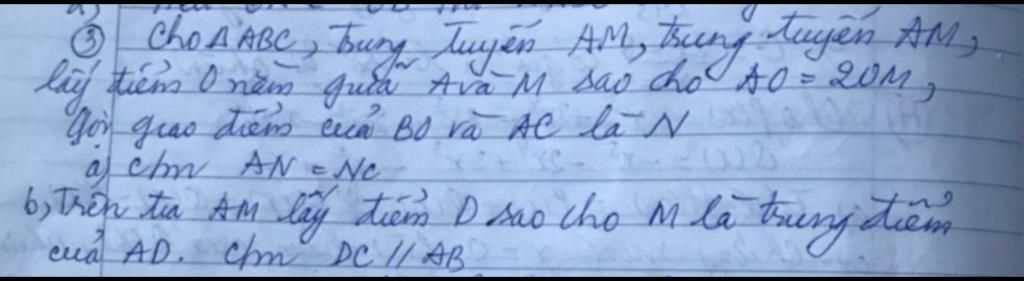 ③ Cho Δ ABC, trung tuyến AM, trung tuyến AM,
lấy điểm O nằm giữa A và M sao cho AO = 2OM,
gọi giao điểm của BO và AC là N
a) c/m AN = NC
b, Trên tia AM lấy điểm D sao cho M là trung điểm
của AD. C/m DC // AB